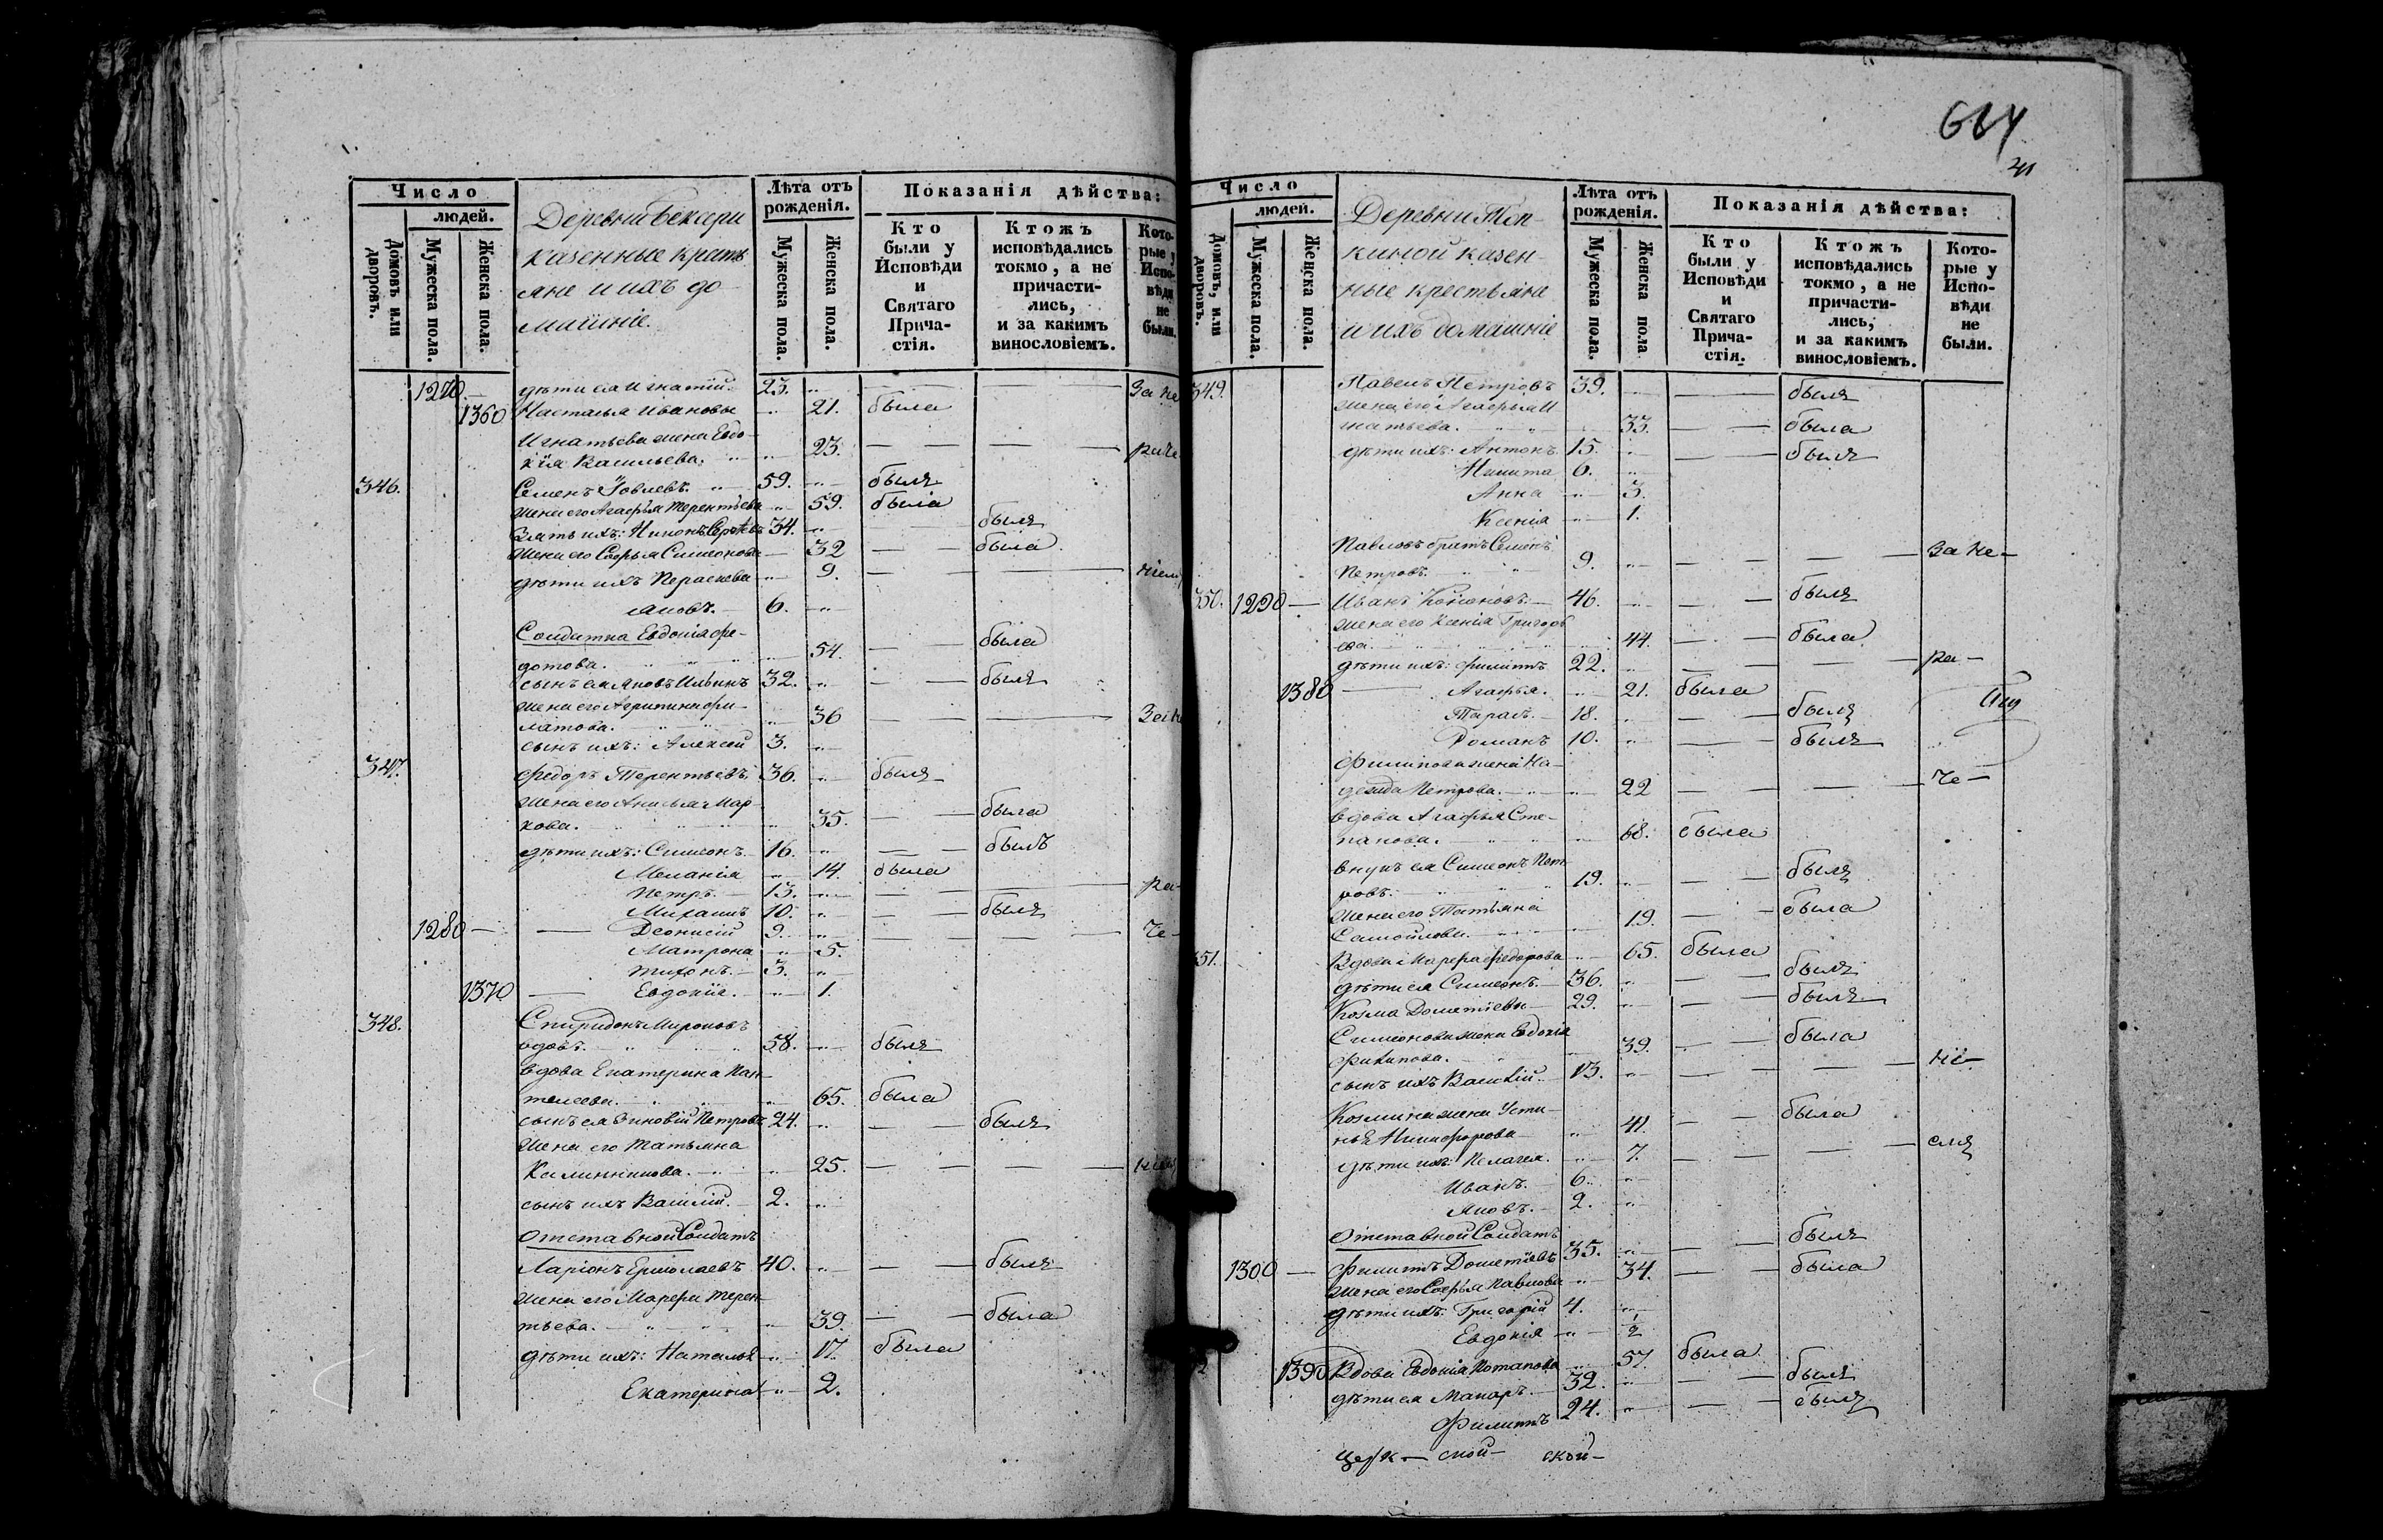 Число
людей.
Домовъ или дворовъ.
Мужеска пола.
Женска пола.
Деревни
казенные кресть
яне и ихъ до-
машніе.
Лѣта отъ рожденія.
Мужеска пола.
Женска пола.
Показанія дѣйства:
Кто были у Исповѣди и Святаго Прича-стія.
Ктожъ исповѣдались токмо, а не причасти-лись, и за какимъ винословіемъ.
Кото-рые у Испо-вѣди не были.
1270 — дѣти ея Игнатій 23. За не
1360 Настасья Ивановы 21. была
Игнатьева жена Евдо-
кія Васильева. 23.
346. Семенъ Іовлевъ. 59. былъ
жена его Агафья Терентьева 59. была
Зять ихъ: Никонъ 34. былъ
жена его Софья Симеонова 32 была
дѣти ихъ Параскева 9.
Яковъ. 6.
Солдатка Евдокія Фе-
дотова. 54. была
сынъ ея Яковъ Ильинъ 32. былъ
жена его Агрипина Фи-
латова. 36
сынъ ихъ: Алексей 3.
347. Федоръ Терентьевъ. 36. былъ
жена его Анисья Мар-
кова. 35. была
дѣти ихъ: Симеонъ. 16. былъ
Меланія 14. была
Петръ. 13. ра-
Михаилъ 10. былъ
1280 — Деонисій 9. че-
Матрона 5.
Тихонъ. 3.
1370 — Евдокія. 1.
348. Спиридонъ Мироновъ
вдовъ. 58. былъ
вдова Екатерина Пан-
телеева. 65. была
сынъ ея Зиновій Петровъ 24. былъ
жена его Татьяна
Калинникова. 25.
сынъ ихъ Василій. 2.
Отставной Солдатъ
Ларіонъ Ермолаевъ 40. былъ
жена его Марфа Терен-
тьева. 39. была
дѣти ихъ: Наталья 17. была
Екатерина 2.
41
Число
людей.
Домовъ, или дворовъ.
Мужеска пола.
Женска пола.
Деревни
киной казен-
ные крестьяне
и ихъ домашніе
Лѣта отъ рожденія.
Мужеска пола.
Женска пола
Показанія дѣйства:
Кто были у Исповѣди и Святаго Прича-стія.
Ктожъ исповѣдались токмо, а не причасти-лись, и за какимъ винословіемъ.
Кото-рые у Испо-вѣди не были.
349. Павелъ Петровъ 39. былъ
жена его Агафья И
гнатьева. 33. была
дѣти ихъ: Антонъ 15. былъ
Никита 6.
Анна 3.
Ксенія 1.
Павловъ братъ Семенъ
Петровъ. 9. За не-
350. 1290 — Иванъ Кононовъ. 46. былъ
жена его Ксенія Григорь
ева. 44. была
дѣти ихъ: Филиппъ 22. ра-
1380 — Агафья. 21. была
Тарасъ. 18. былъ
Романъ 10. былъ
Филипова жена На-
дежда Петрова. 22 че-
вдова Агафья Сте-
панова. 68. была
внукъ ея Симеонъ Пет-
ровъ. 19. былъ
жена его Татьяна
Самойлова. 19. была
351. Вдова Марфа Федорова 65. была
дѣти ея Симеонъ. 36. былъ
Козма Дометіевы 29. былъ
Симеонова жена Евдокія
Филипова. 39. была
сынъ ихъ Василій. 13. ні-
Козмина жена Усти-
нья Никифорова 41. была
дѣти ихъ: Пелагея. 7. емъ
Иванъ. 6.
Яковъ. 2.
Отставной Солдатъ
1300 — Филиппъ Дометіевъ 35. былъ
жена его Софья Павлова 34. была
дѣти ихъ: Григорій 4.
Евдокія 1/2
1390 Вдова Евдокія Потапова 57. была
дѣти ея Макаръ. 32. былъ
Филиппъ 24. былъ
церк — ской — ской —